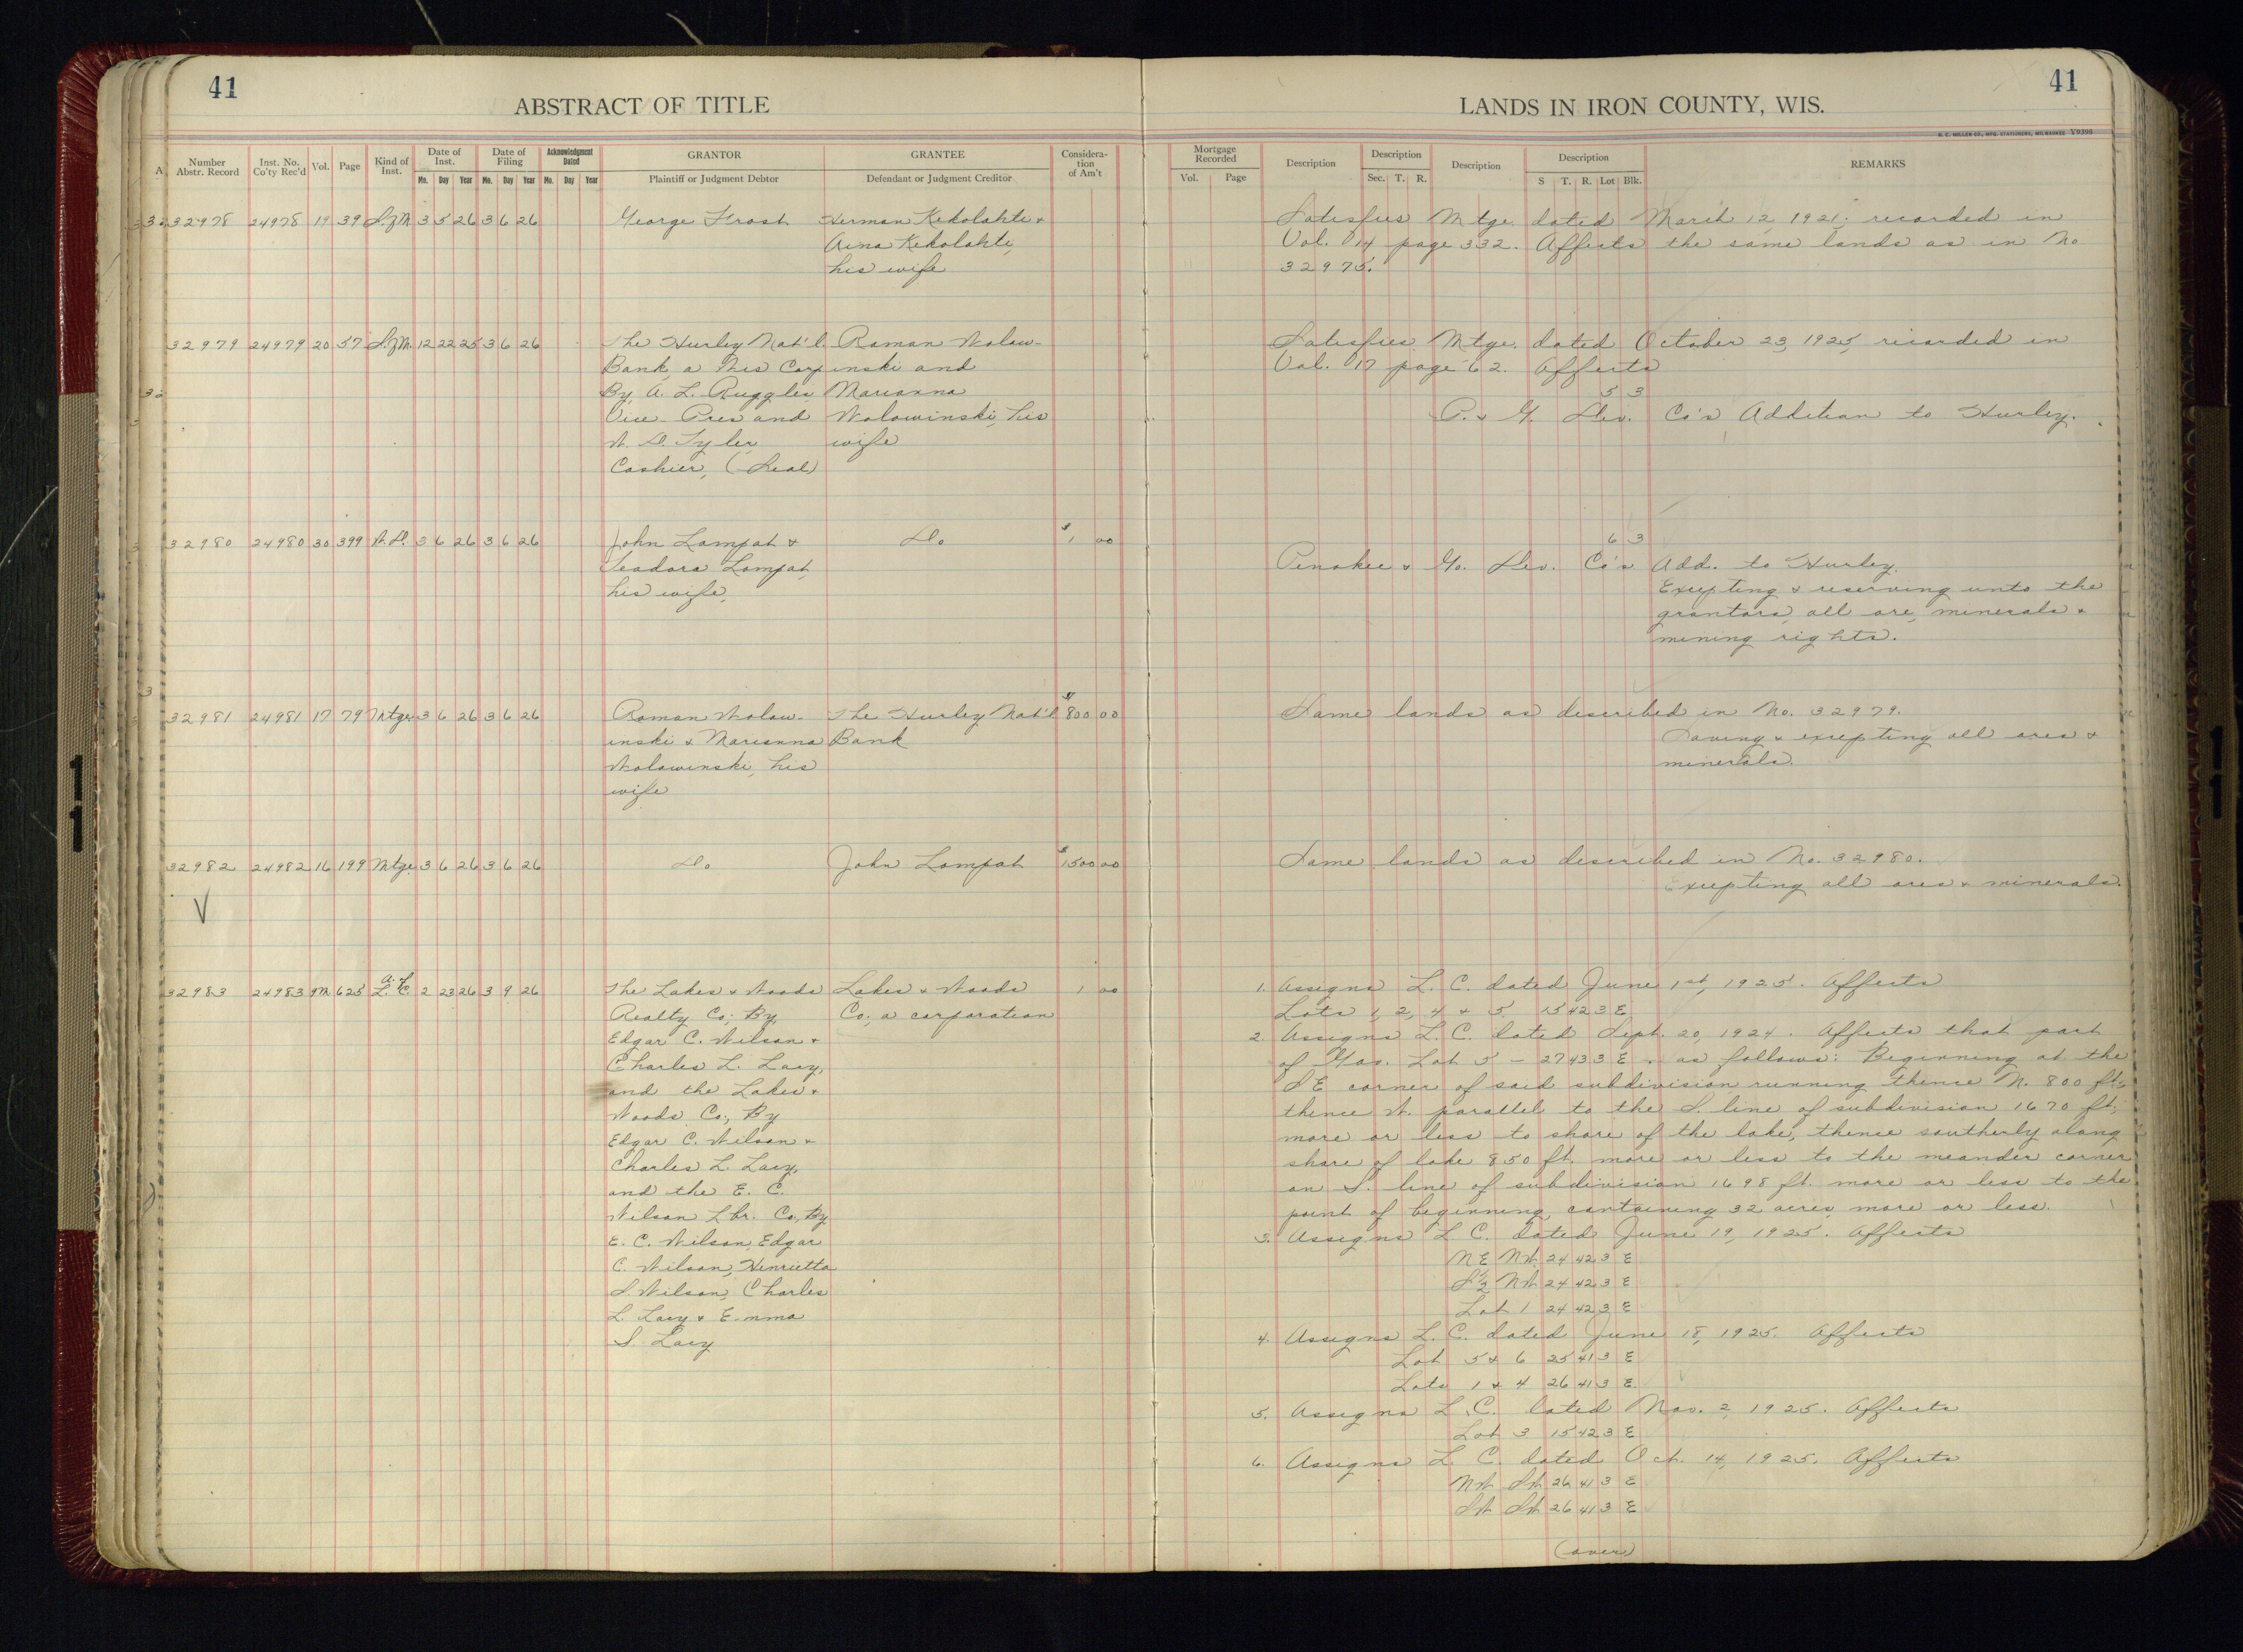 41
ABSTRACT OF TITLE
Number Abstr. Record
Inst. No. Co'ty Rec'd
Vol.
Page
Kind of Inst.
Date of Inst.
Mo. Day Year
Date of Filing
Mo. Day Year
Acknowledgment Dated
Mo. Day Year
GRANTOR
Plaintiff or Judgment Debtor
GRANTEE
Defendant or Judgment Creditor
Consideration of Am't
32978 24978 19 39 S.of M. 3 5 26 3 6 26 George Frost Herman Kekolahti &
Aina Kekolahti,
his wife
32979 24979 20 57 S.of M. 12 22 25 3 6 26 The Hurley Nat'l. Roman Wolow-
Bank, a Wis Corp inski and
By A. L. Ruggles Marianna
Vice-Pres and Wolowinski, his
W. S. Tyler, wife
Cashier, (Seal)
32980 24980 30 399 W.D. 3 6 26 3 6 26 John Lampat & Do $1 00
Teodora Lampat,
his wife,
32981 24981 17 79 Mtge 3 6 26 3 6 26 Roman Wolow- The Hurley Nat'l $800 00
inski & Marianna Bank
Wolowinski, his
wife
32982 24982 16 199 Mtge. 3 6 26 3 6 26 Do John Lampat $1500 00
A. of
32983 24983 9M 625 L.C. 2 23 26 3 9 26 The Lakes & Woods Lakes & Woods 1 00
Realty Co; By, Co; a corporation
Edgar C. Wilson &
Charles L. Lacy,
and the Lakes &
Woods Co., By
Edgar C. Wilson &
Charles L. Lacy,
and the E. C.
Wilson Lbr. Co., By
E. C. Wilson, Edgar
C. Wilson, Henrietta
S. Wilson, Charles
L. Lacy & Emma
S. Lacy
41
LANDS IN IRON COUNTY, WIS.
H. C. MILLER CO., MFG. STATIONERS, MILWAUKEE Y9398
Mortgage Recorded
Vol. Page
Description
Description
Sec. T. R.
Description
Description
S T. R. Lot Blk.
REMARKS
Satisfies Mtge. dated March 12, 1921; recorded in
Vol. 14 page 332. Affects the same lands as in No.
32975.
Satisfies Mtge. dated October 23, 1925, recorded in
Vol. 17 page 62. Affects
5 3
P. & G. Dev. Co's Addition to Hurley.
6 3
Penokee & Go. Dev. Co's Add. to Hurley.
Excepting & reserving unto the
grantors, all ore, minerals &
mining rights.
Same lands as described in No. 32979.
Saving & excepting all ores &
minerals.
Same lands as described in No. 32980.
Excepting all ores & minerals.
1. Assigns L. C. dated June 1st, 1925. Affects
Lots 1, 2, 4 & 5 15 42 3 E
2. Assigns L. C. dated Sept. 20, 1924. Affects that part
of Gov. Lot 5 - 27 43 3 E. as follows: Beginning at the
SE corner of said subdivision running thence N. 800 ft.;
thence W. parallel to the S. line of subdivision 1670 ft;
more or less to shore of the lake, thence southerly along
shore of lake 850 ft. more or less to the meander corner
on S. line of subdivision 1698 ft. more or less to the
point of beginning, containing 32 acres, more or less.
3. Assigns L. C. dated June 19, 1925. Affects
NE NW 24 42 3 E
S½ NW 24 42 3 E
Lot 1 24 42 3 E
4. Assigns L. C. dated June 18, 1925. Affects
Lot 5 & 6 25 41 3 E
Lots 1 & 4 26 41 3 E.
5. Assigns L. C. dated Nov. 2, 1925. Affects
Lot 3 15 42 3 E
6. Assigns L. C. dated Oct. 14, 1925. Affects
NW SW 26 41 3 E
SW SW 26 41 3 E
(over)